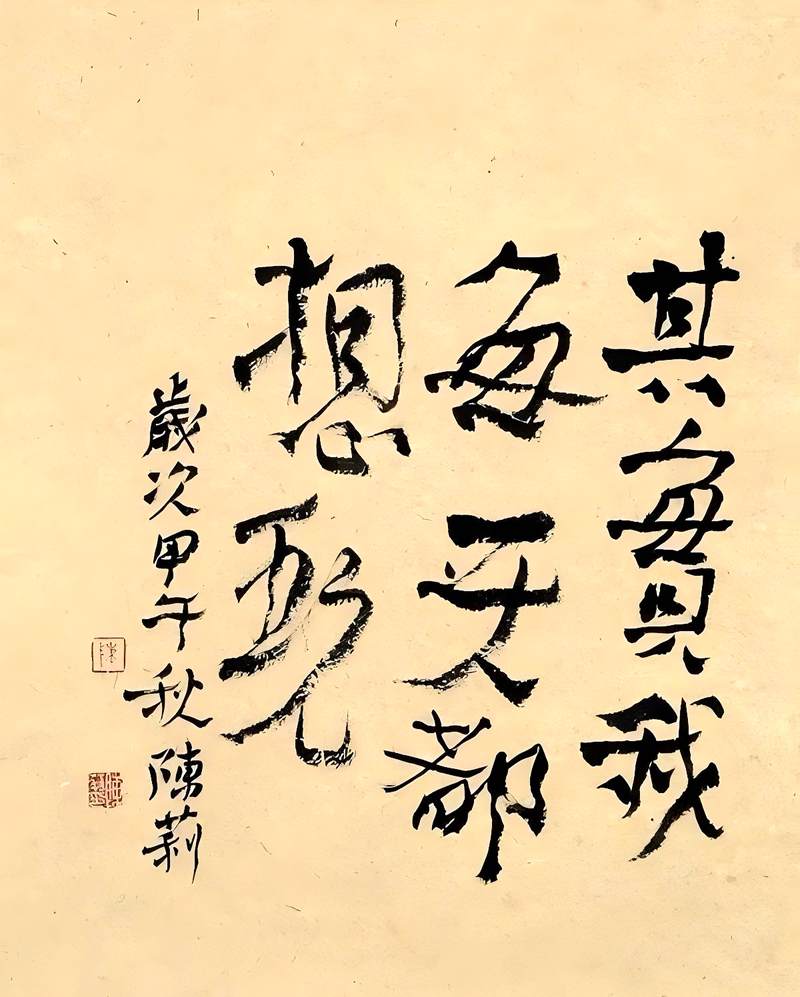 其實我
每天都
想
歲次甲午秋陳莉
陳